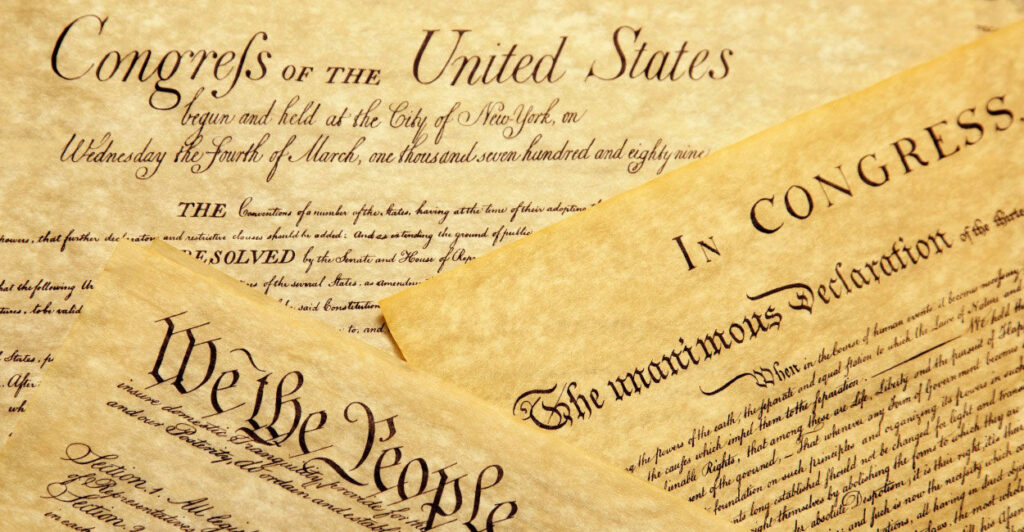 Congreſs OF THE United States
begun and held at the City of New York, on
Wednesday the fourth of March, one thousand seven hundred and eighty nine
THE Conventions of a number of the States, having at the time of their adopting
powers, that further declaratory and restrictive clauses should be added: And as extending the ground of public
RESOLVED by the Senate and House of
hat the following
of the several States, as
said Constitution
tures, to be valid
to, and
States,
After
IN CONGRESS,
The unanimous Declaration of the
When in the Course of human events, it becomes necessary
the powers of the earth, the separate and equal station to which the Laws of Nature and
the causes which impel them to the separation. We hold
unable Rights, that among these are Life, Liberty and the pursuit of
of the governed, — That whenever any Form of Government becomes
foundation on such principles and organizing its powers in such
long established should not be changed for light and
themselves by abolishing the forms to which they are
absolute Despotism, it is their right, it is their
and such is now the necessity which
We the People
insure domestic Tranquility, provide for the
and our Posterity, do ordain and
Section. 1. All
of Representatives
Section. 2.